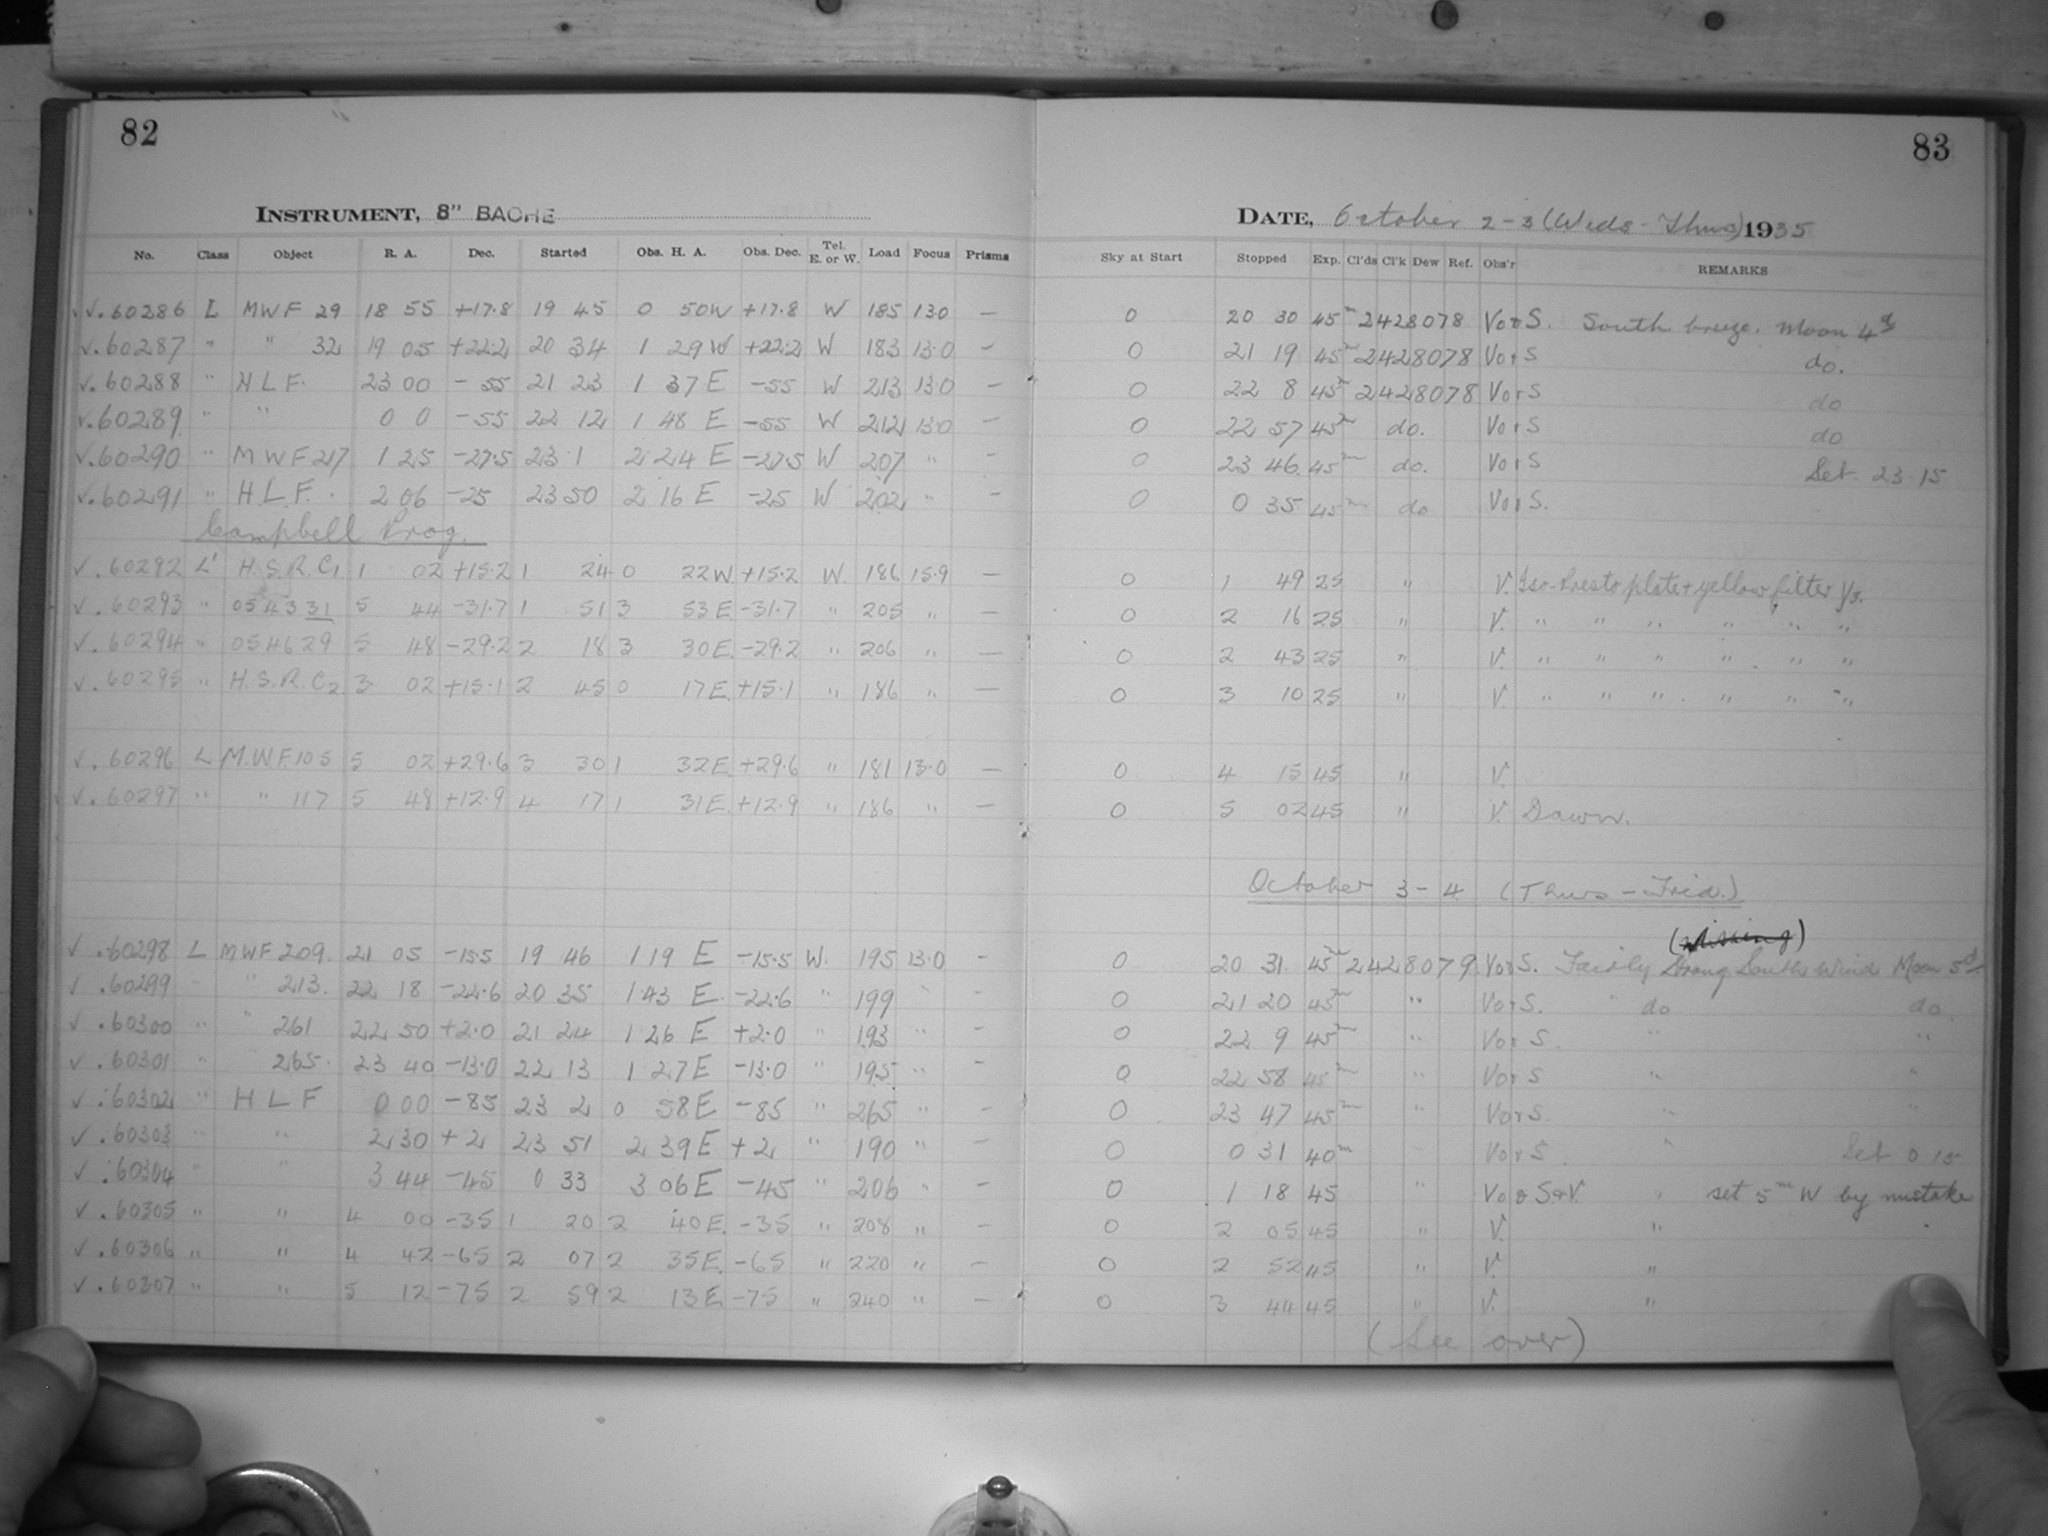 82
INSTRUMENT, 8" BACHE
No. Class Object R. A. Dec. Started Obs. H. A. Obs. Dec. Tel. E. or W. Load Focus Prisms
√.60286 L MWF 29 18 55 +17.8 19 45 0 50W +17.8 W 185 13.0 —
√.60287 " " 32 19 05 +22.2 20 34 1 29W +22.2 W 183 13.0 —
√.60288 " H L F. 23 00 -55 21 23 1 37 E -55 W 213 13.0 —
√.60289 " " 0 0 -55 22 12 1 48 E -55 W 212 13.0 —
√.60290 " MWF 217 1 25 -27.5 23 1 2 24 E -27.5 W 207 " —
√.60291 " H.L.F. 2 06 -25 23 50 2 16 E -25 W 202 " —
Campbell Prog.
√.60292 L' H.S.R.C1 1 02 +15.2 1 24 0 22W +15.2 W. 186 15.9 —
√.60293 " 054331 5 44 -31.7 1 51 3 53E -31.7 " 205 " —
√.60294 " 054629 5 48 -29.2 2 18 3 30E. -29.2 " 206 " —
√.60295 " H.S.R.C2 3 02 +15.1 2 45 0 17E. +15.1 " 186 " —
√.60296 L M.W.F.105 5 02 +29.6 3 30 1 32E. +29.6 " 181 13.0 —
√.60297 " " 117 5 48 +12.9 4 17 1 31E. +12.9 " 186 " —
√.60298 L MWF 209. 21 05 -15.5 19 46 1 19 E -15.5 W. 195 13.0 —
√.60299 " 213. 22 18 -22.6 20 35 1 43 E. -22.6 " 199 " —
√.60300 " " 261 22 50 +2.0 21 24 1 26 E +2.0 " 193 " —
√.60301 " " 265. 23 40 -13.0 22 13 1 27 E -13.0 " 195 " —
√.60302 " H L F 0 00 -85 23 2 0 58 E -85 " 265 " —
√.60303 " " 2 30 +2 23 51 2 39 E +2 " 190 " —
√.60304 " " 3 44 -45 0 33 3 06 E -45 " 206 " —
√.60305 " " 4 00 -35 1 20 2 40 E. -35 " 208 " —
√.60306 " " 4 42 -65 2 07 2 35E. -65 " 220 " —
√.60307 " " 5 12 -75 2 59 2 13E. -75 " 240 " —
83
DATE, October 2-3 (Weds - Thurs) 1935
Sky at Start Stopped Exp. Cl'ds Cl'k Dew Ref. Obs'r REMARKS
0 20 30 45m 2428078 VorS. South breeze. Moon 4d
0 21 19 45m 2428078 VorS do.
0 22 8 45m 2428078 VorS do
0 22 57 45m do. VorS do
0 23 46 45m do. VorS Set. 23.15
0 0 35 45m do VorS.
0 1 49 25 " V. Iso-Presto plate + yellow filter 1/3.
0 2 16 25 " V. " " " " " "
0 2 43 25 " V. " " " " " "
0 3 10 25 " V. " " " " " "
0 4 15 45 " V.
0 5 02 45 " V. Dawn.
October 3-4 (Thurs - Frid.)
0 20 31 45m 2428079 VorS. Fairly Strong South Wind Moon 5d
0 21 20 45m " VorS. " do do.
0 22 9 45m " VorS. " "
0 22 58 45m " VorS " "
0 23 47 45m " VorS. " "
0 0 31 40m VorS " Set 0 15
0 1 18 45 " VorS+V " set 5m W by mistake
0 2 05 45 " V. "
0 2 52 45 " V. "
0 3 44 45 " V. "
(See over)